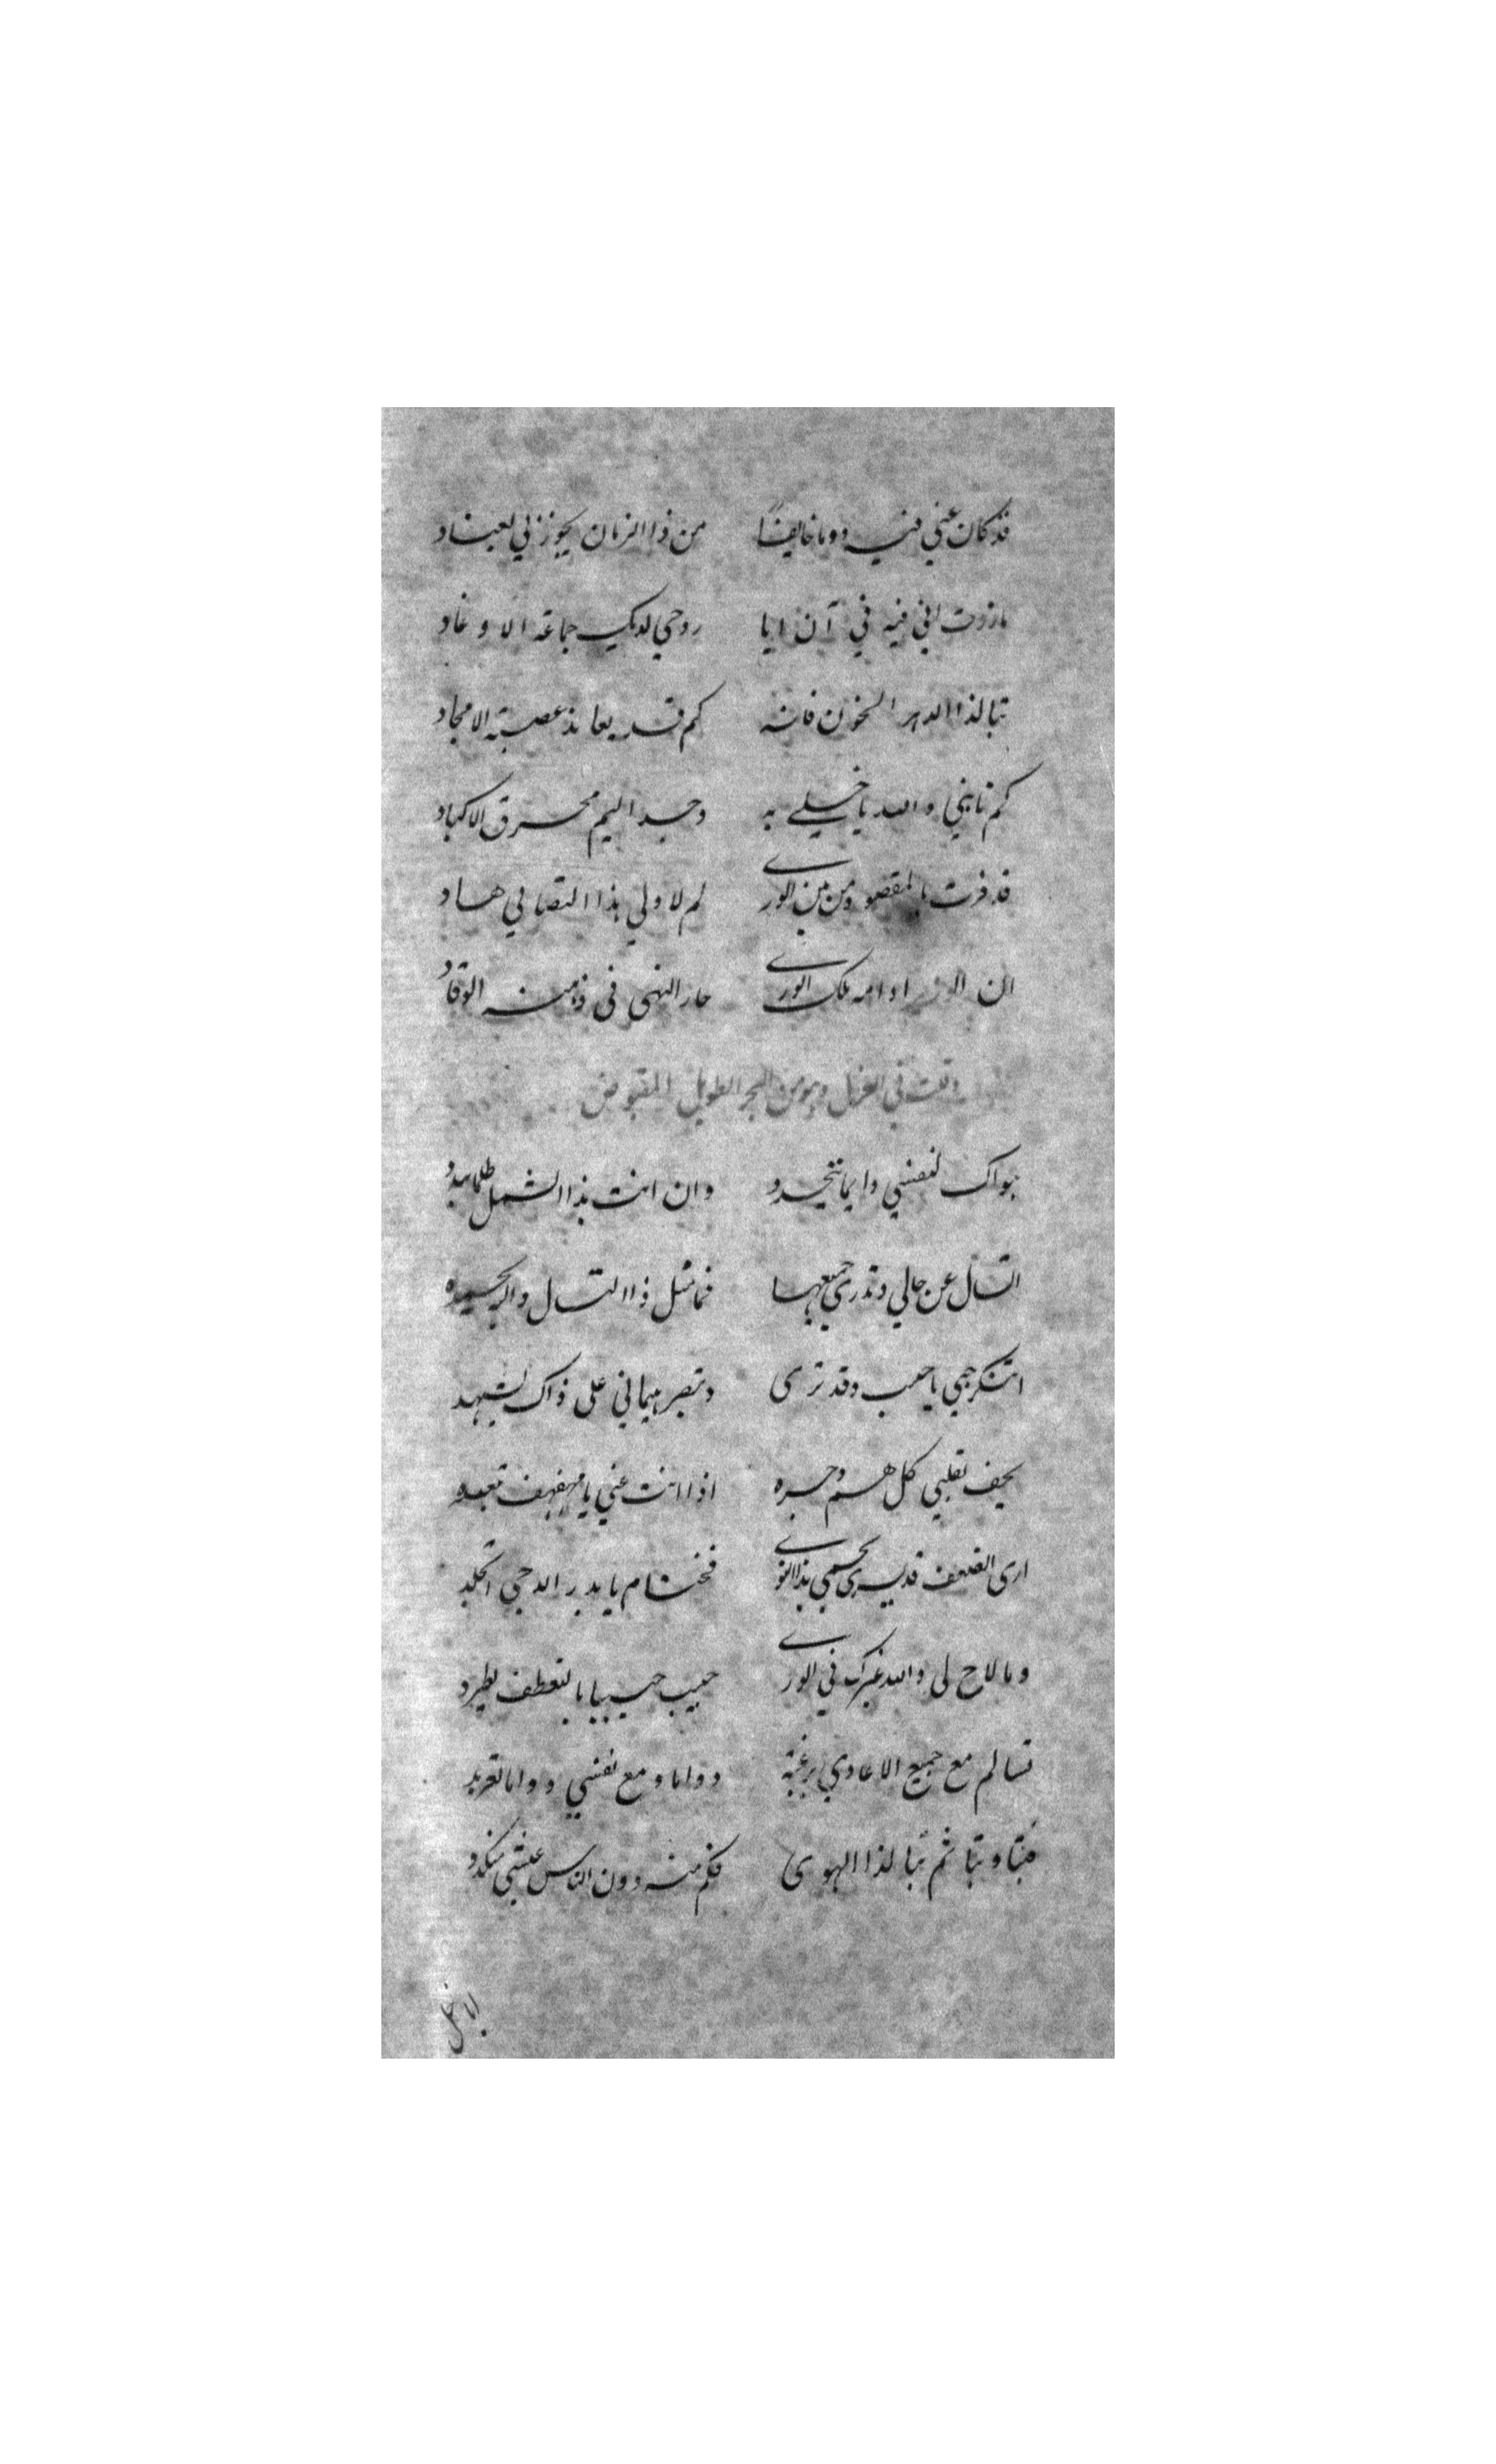 قد كان عني فيه دوما خايفًا من ذا الزمان يجوز لي لعناد
ما زرت اني فيه في آن ايا روحي لديك جماعة الاوغاد
تبا لذا الدهر الخون فانه كم قد يعاند عصبة الامجاد
كم نابني والله يا خيلي به وجد اليم محرق الاكباد
قد فزت بالمقصود من بين الورى لم لا ولي هذا التصابي هاد
ان ادامه ملك الورى حار النهى في ذهنه الوقاد
وقلت في الغزل وهو من البحر الطويل المقبوض
هواك لنفسي دايما يتجدد وان انت هذا الشمل ظلما تبدد
اتسال عن حالي وتدري جميعها فما مثل ذا التسال
اتنكر حبي يا حبيب وقد ترى وتبصر هيماني على ذاك تشهد
يحف بقلبي كل هم وحسرة اذا انت عني يا مهفهف تبعد
ارى الضعف قد يسري بجسمي بذا النوى فحتام يا بدر الدجى اتجلد
وما لاح لي والله غيرك في الورى حبيب حبيبا بالتعطف يطرد
تسالم مع جميع الاعادي برغبة دواما ومع نفسي دواما تعربد
فتبا وتبا ثم تبا لذا الهوى فكم منه دون الناس عيشي منكد